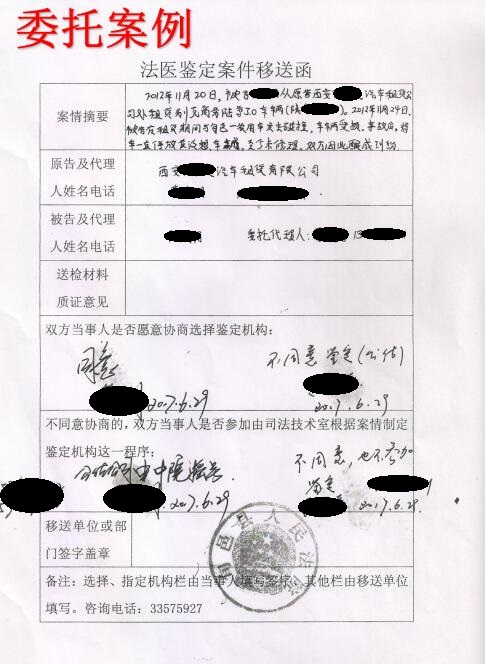 委托案例
法医鉴定案件移送函
案情摘要
2012年11月20日,被告 从原告西安 汽车租赁公
司处租赁别克商务陆尊GL8车辆(陕 )。2012年11月24日
被告在租赁期间与自己一故用车发生碰撞,车辆受损,事故后,将
原告及代理
人姓名电话
西安 汽车租赁有限公司
被告及代理
人姓名电话
委托代理人: 13
送检材料
质证意见
双方当事人是否愿意协商选择鉴定机构:
同意
2017.6.29
不同意鉴定(公估)
2017.6.29
不同意协商的,双方当事人是否参加由司法技术室根据案情制定
鉴定机构这一程序:
2017.6.29
不同意,也不参加
鉴定
2017.6.29
移送单位或部
门签字盖章
县人民法
备注:选择、指定机构栏由当事人填写签字;其他栏由移送单位
填写。咨询电话:33575927